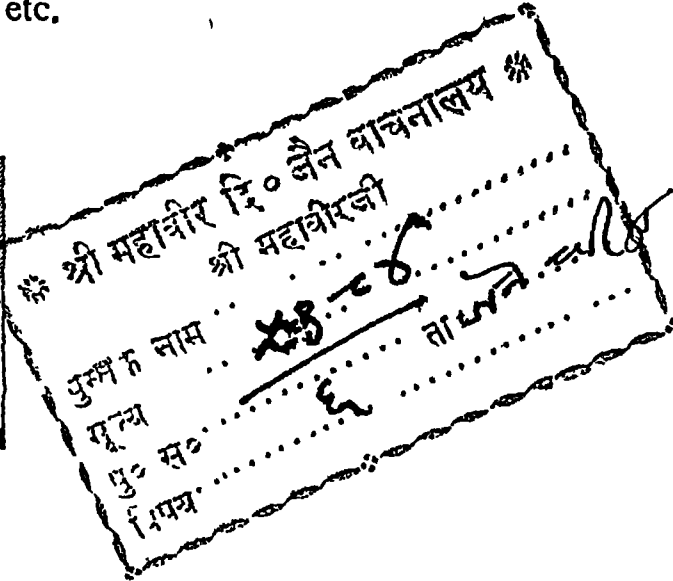 etc.
श्री महावीर दि० जैन वाचनालय
श्री महावीरजी
पुस्तक नाम
मूल्य
पु० स० ता
विषय ६